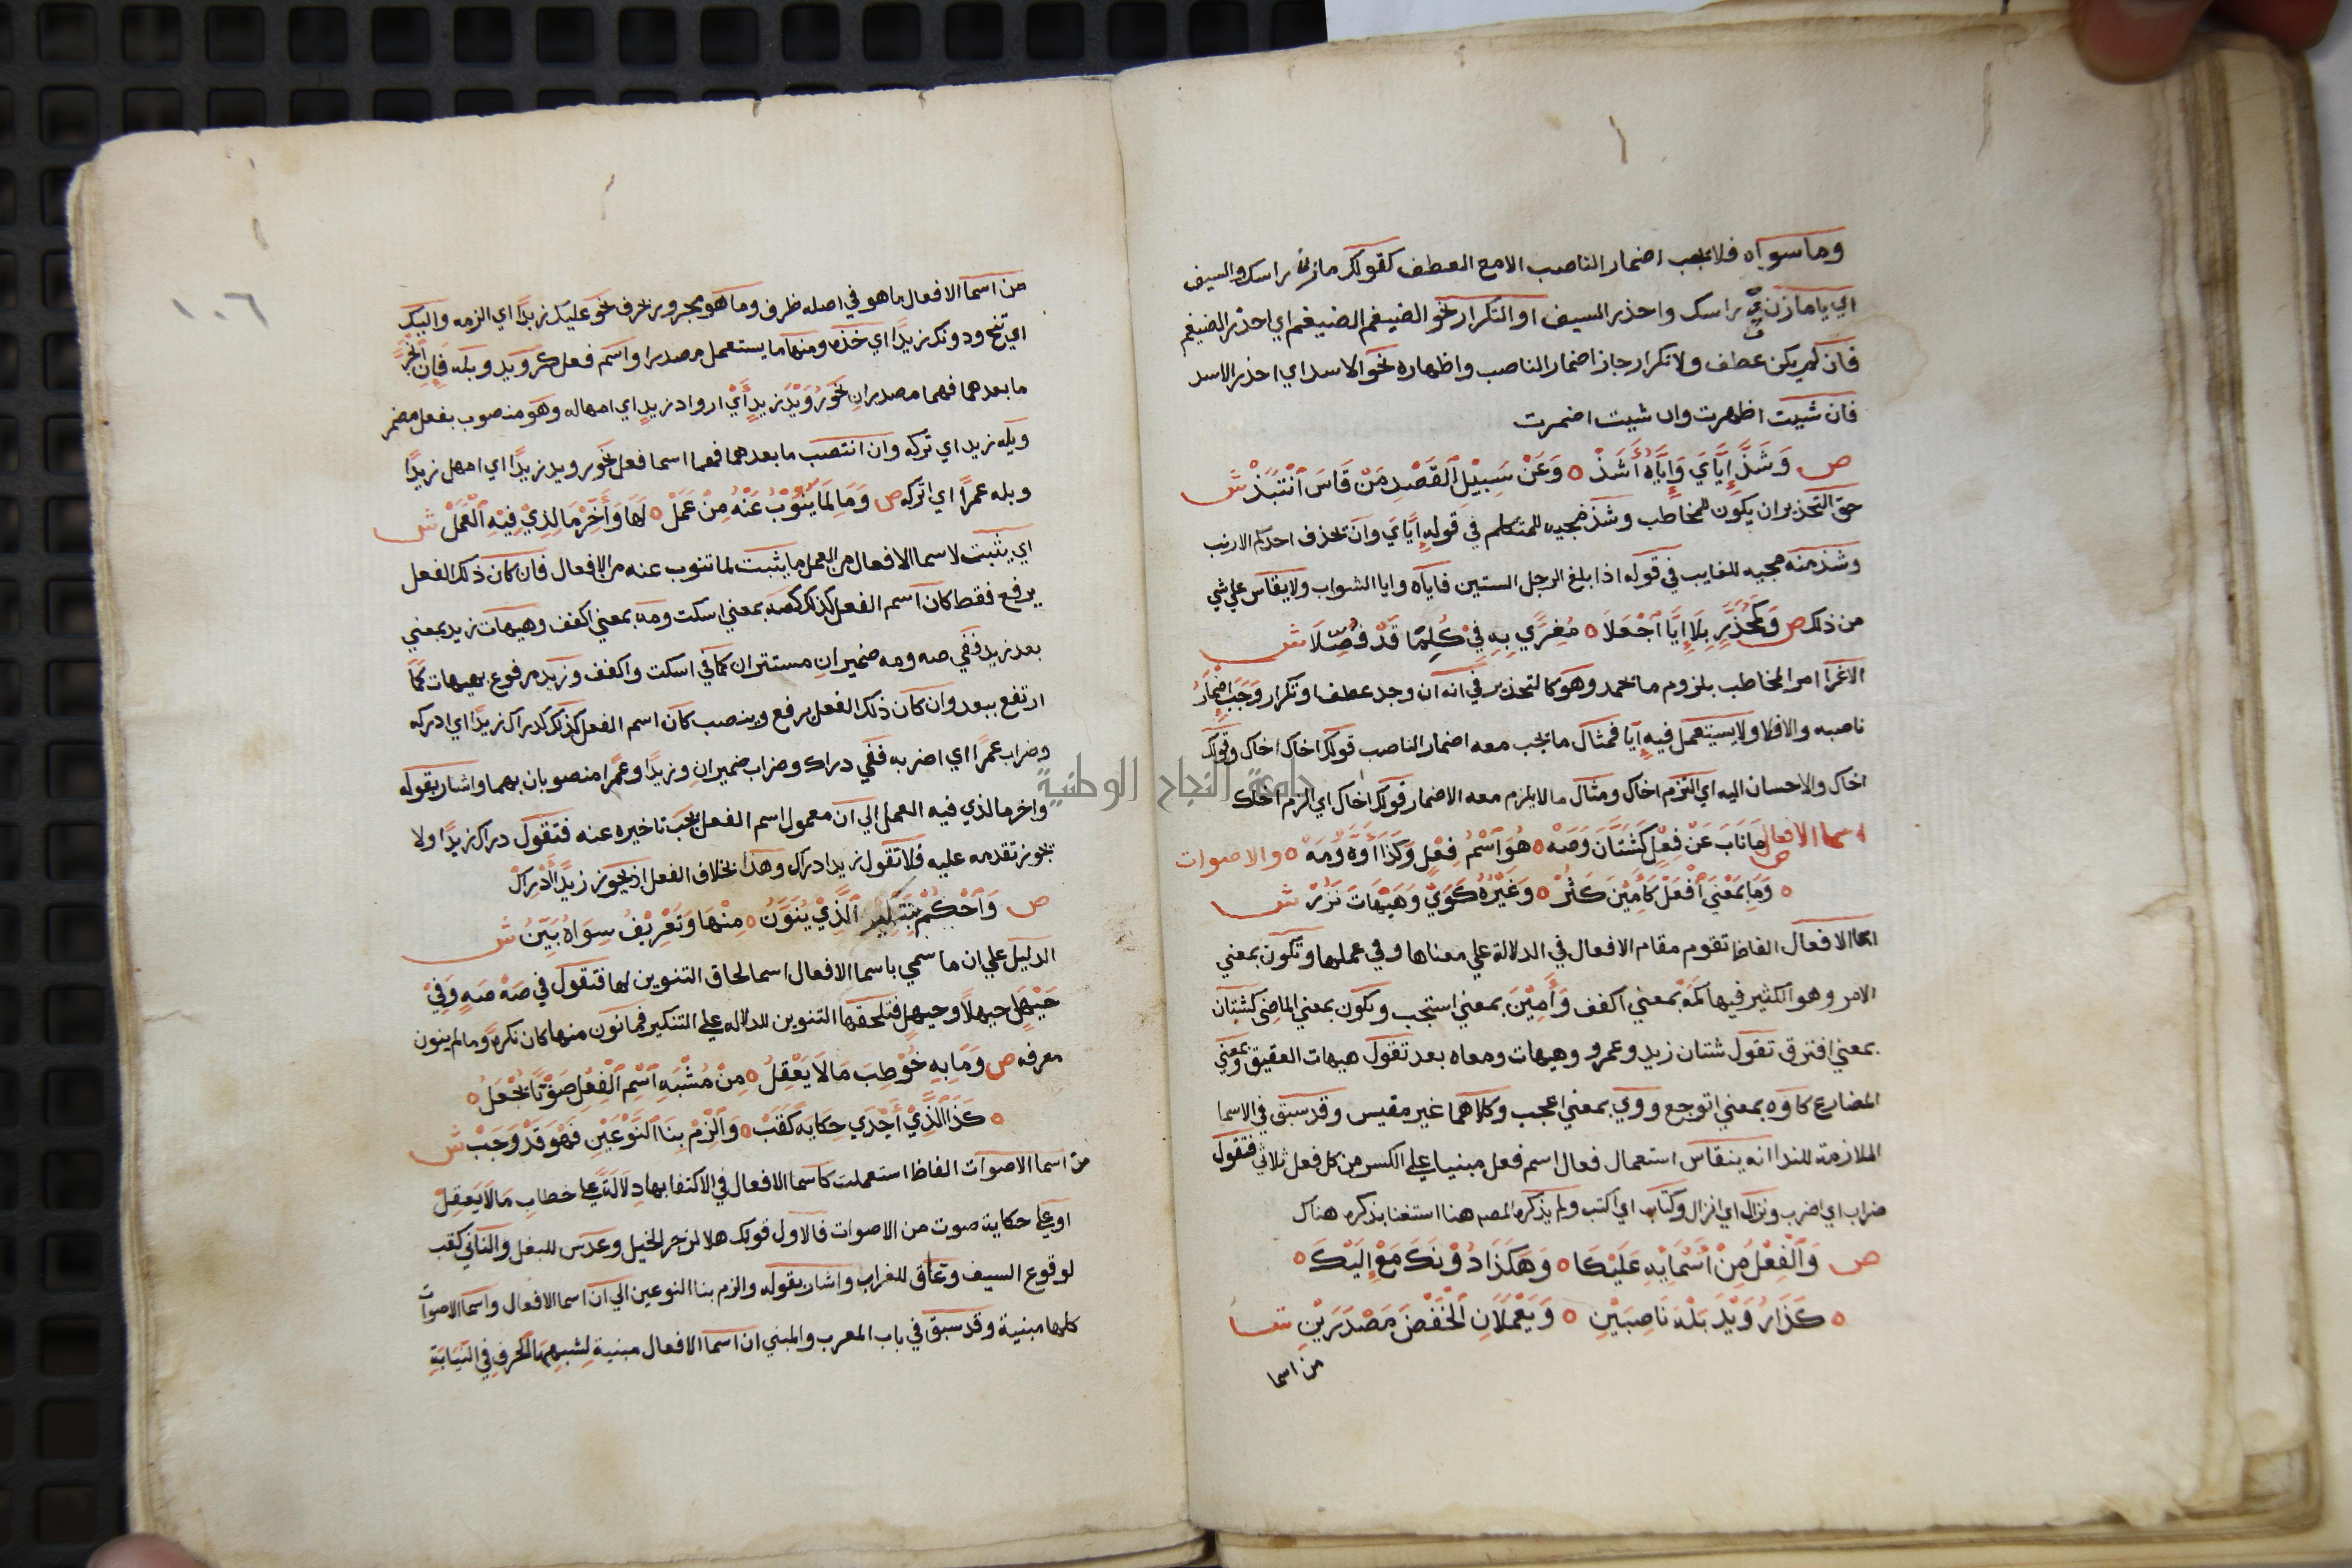 وما سواه فلا يجب اضمار الناصب الا مع العطف كقولك ماز راسك والسيف
اي يا مازن ق راسك واحذر السيف او التكرار نحو الضيغم الضيغم اي احذر الضيغم
فان لم يكن عطف ولا تكرار جاز اضمار الناصب واظهاره نحو الاسد اي احذر الاسد
فان شيت اظهرت وان شيت اضمرت
ص وَشَذَّ إِيَّايَ وَإِيَّاهُ أَشَذْ ه وَعَنْ سَبِيْلِ ٱلقَصْدِ مَنْ قَاسَ ٱنْتَبَذْ ش
حق التحذير ان يكون للمخاطب وشذ مجيه للمتكلم في قوله إيَّايَ وان يحذف احدكم الارنب
وشذ منه مجيه للغايب في قوله اذا بلغ الرجل الستين فاياه وايا الشواب ولا يقاس علي شي
من ذلك ص وَكَمُحَذَّرٍ بِلَا إِيَّا ٱجْعَلَا ه مُغْرًي بِهِ فِيْ كُلِّ مَا قَدْ فُصِّلَا ش
الاغرا امر المخاطب بلزوم ما يحمد وهو كالتحذير في انه ان وجد عطف او تكرار وَجَبَ إِضْمَارُ
ناصبه والا فلا ولا يستعمل فيه إيّا فمثال ما يجب معه اضمار الناصب قولك اخاك اخاك وقولك
اخاك والاحسان اليه اي الزم اخاك ومثال ما لا يلزم معه الاضمار قولك اخاك اي الزم اخاك
اسما الافعال ص مَا نَابَ عَنْ فِعْلٍ كَشَتَّانَ وَصَهْ ه هُوَ ٱسْمُ فِعْلٍ وَكَذَا أَوَّهْ وَمَهْ ه والاصوات
ه وَمَا بِمَعْنَي ٱفْعَلْ كَآمِيْنَ كَثُرْ ه وَغَيْرُهُ كَوَيْ وَهَيْهَاتَ نَزُرْ ش
اسما الافعال الفاظ تقوم مقام الافعال في الدلالة علي معناها وفي عملها وتكون بمعني
الامر وهو الكثير فيها كمَهْ بمعني اكفف وَأَمِيْنَ بمعني استجب وتكون بمعني الماضي كشتان
بمعني افترق تقول شتان زيد وعمرو وهيهات ومعناه بعد تقول هيهات العقيق وبمعني
المضارع كاوه بمعني اتوجع ووي بمعني اعجب وكلاهما غير مقيس وقد سبق في الاسما
الملازمة للندا انه ينقاس استعمال فعال اسم فعل مبنيا علي الكسر من كل فعل ثلاثي فتقول
ضراب اي اضرب ونزال اي انزال وكتاب اي اكتب ولم يذكره المصه هنا استغنا بذكره هناك
ص وَٱلْفِعْلُ مِنْ أَسْمَايِهِ عَلَيْكَا ه وَهَكَذَا دُوْنَكَ مَعْ إِلَيْكَ ه
ه كَذَا رُوَيْدَ بَلْهَ نَاصِبَيْنِ ه وَيَعْمَلَانِ ٱلْخَفْضَ مَصْدَرَيْنِ ش
من اسما
١٠٦
من اسما الافعال ما هو في اصله ظرف وما هو مجرور بحرف نحو عليك زيدًا اي الزمه واليك
اي تنح ودونك زيدًا اي خذه ومنها ما يستعمل مصدرا واسم فعل كرويد وبله فان انجر
ما بعدهما فهما مصدران نحو رُوَيْدَ زيدٍ أَيْ ارواد زيدٍ اي امهاله وهو منصوب بفعل مضمر
وبله زيد اي تركه وان انتصب ما بعدهما فهما اسما فعل نحو رويد زيدًا اي امهل زيدًا
وبله عمرًا اي اتركه ص وَمَا لِمَا يَنُوْبُ عَنْهُ مِنْ عَمَلْ ه لَهَا وَأَخِّرْ مَا لِذِيْ فِيْهِ ٱلْعَمَلْ ش
اي يثبت لاسما الافعال من العمل ما يثبت لما تنوب عنه من الافعال فان كان ذلك الفعل
يرفع فقط كان اسم الفعل كذلك كصه بمعني اسكت ومه بمعني اكفف وهيهات زيد بمعني
بعد زيد ففي صه ومه ضميران مستتران كما في اسكت واكفف وزيد مرفوع بهيهات كما
ارتفع ببعد وان كان ذلك الفعل يرفع وينصب كان اسم الفعل كذلك كدراك زيدًا اي ادركه
وضراب عمرًا اي اضربه ففي دراك وضراب ضميران وزيدًا وعمرًا منصوبان بهما واشار بقوله
واخر ما لذي فيه العمل الي ان معمول اسم الفعل يجب تاخيره عنه فتقول دراك زيدًا ولا
يجوز تقدمه عليه فلا تقول زيدا دراك وهذا بخلاف الفعل اذ يجوز زيدًا أَدْرِكْ
ص وَٱحْكُمْ بِتَنْكِيرِ ٱلَّذِيْ يُنَوَّنُ ه مِنْهَا وَتَعْرِيْفُ سِوَاهُ بَيِّنُ ش
الدليل علي ان ما سمي باسما الافعال اسما لحاق التنوين لها فتقول في صَهْ صَهٍ وَفِيْ
حَيْهَلَ حيهلًا وحيهل فتلحقها التنوين للدلاله علي التنكير فما نون منها كان نكرةً وما لم ينون
معرفه ص وَمَا بِهِ خُوْطِبَ مَا لَا يَعْقِلُ ه مِنْ مُشْبِهِ ٱسْمِ ٱلْفِعْلِ صَوْتًا يُجْعَلُ ه
ه كَذَا ٱلَّذِيْ أَجْدَي حِكَايَةً كَقَبْ ه وَٱلْزَمْ بِنَا ٱلنَّوْعَيْنِ فَهْوَ قَدْ وَجَبْ ش
من اسما الاصوات الفاظ استعملت كاسما الافعال في الاكتفا بها دلالة علي خطاب مَا لَا يَعْقِلْ
او علي حكاية صوت من الاصوات فالاول قولك هلا لزجر الخيل وعدس للبغل والثاني كقب
لوقوع السيف وغاق للغراب واشار بقوله والزم بنا النوعين الي ان اسما الافعال واسما الاصوات
كلها مبنية وقد سبق في باب المعرب والمبني ان اسما الافعال مبنية لشبهها بالحرف في النيابة
جامعة النجاح الوطنية